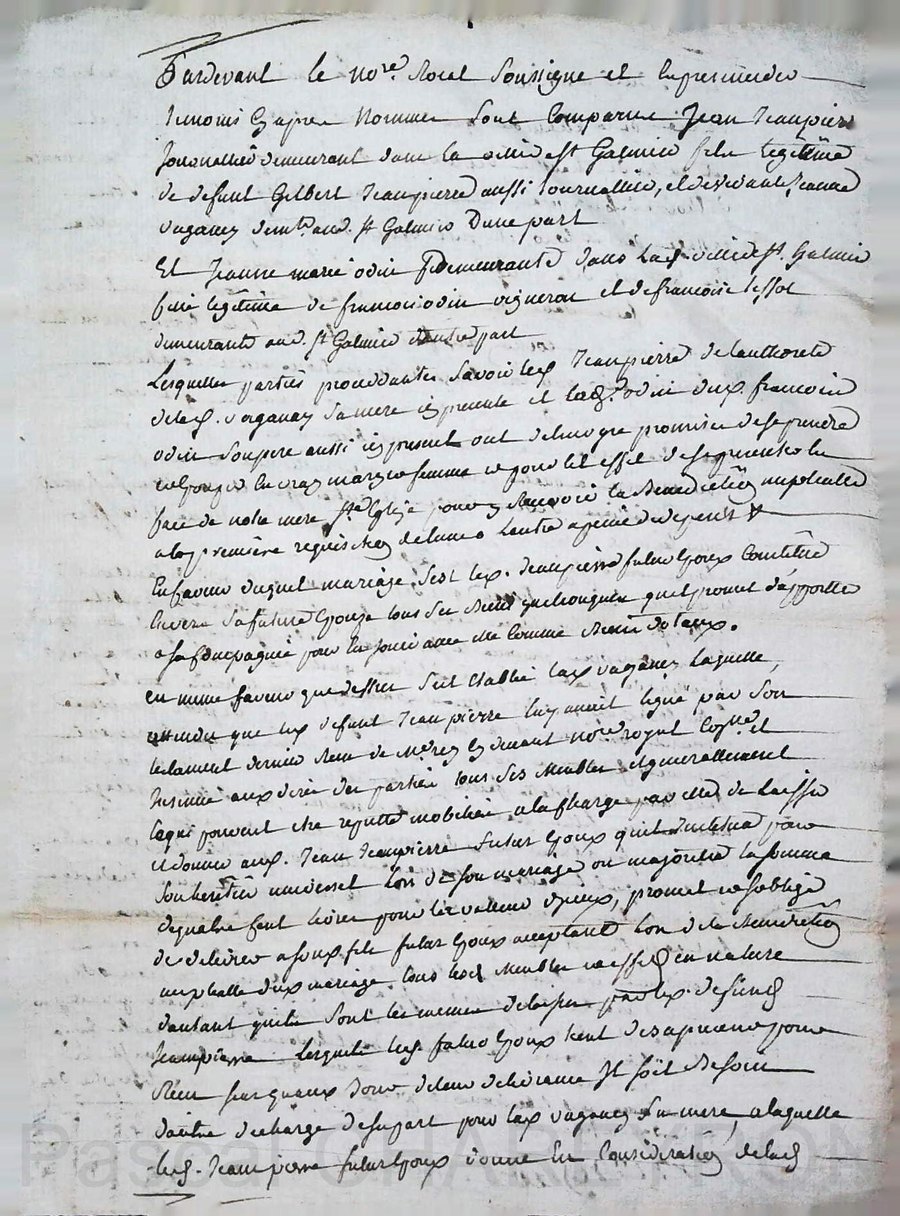 Pardevant le no.re Royal Soussigné et en presence des
temoins cy apres Nommes Sont comparus Jean Jeanpierre
Journallier demeurant dans la ville de St Galmier fils legitime
de defunt Gilbert Jeanpierre aussi Journallier, et de vivante Jeanne
vaganay demt. aud. St Galmier D'une part
Et Jeanne marie odin demeurante dans lad. ville de St. Galmier
fille legitime de francois odin vigneron et de francoise
demeurants aud. St Galmier d'autre part
Lesquelles parties procedantes savoir led. Jeanpierre de l'authorité
de lad. vaganay sa mere cy presente et lad. odin dud. francois
odin son pere aussi cy present ont de leur gré promis de se prendre
en vray mary et femme et pour cet effet de se presenter en
face de notre mere Ste Eglise pour y recevoir la Benediction nuptialle
a la premiere requisition de l'une a l'autre a peine de depens
En faveur duquel mariage s'est led. Jeanpierre futur Epoux Constitué
Envers sa future Epouse tous ses Biens quelconques qu'il promet d'apporter
a sa compagnie pour en jouir avec elle comme Biens dotaux.
en meme faveur que dessus s'est Etablie lad vaganay laquelle,
attendu que led defunt Jeanpierre luy auroit legué par son
testament dernier Receu de Me devant nore royal
insinué aux dires des parties tous ses Meubles et generallement
ce qui pouvoit etre reputté mobilier a la charge par elle de laisser
et donner aud. Jean Jeanpierre futur Epoux qu'il institua pour
son heritier universel lors de son mariage ou majorité la somme
de quatre cent livres pour la valleur d'yceux, promet et s'oblige
de delivrer a son d. fils futur Epoux acceptant lors de la Benediction
nuptialle dud mariage tous lesd Meubles et effets en nature
d'autant qu'ils sont les memes delaissés par led. defunt
Jeanpierre lesquels led. futur Epoux tient des a present pour
Receu sans quaux dons de leur delivrance il soit Besoin
d'autre decharge de sa part pour lad vaganay sa mere, a laquelle
led. Jeanpierre futur Epoux donne En Consideration de lad
Pascal CHARLYRON